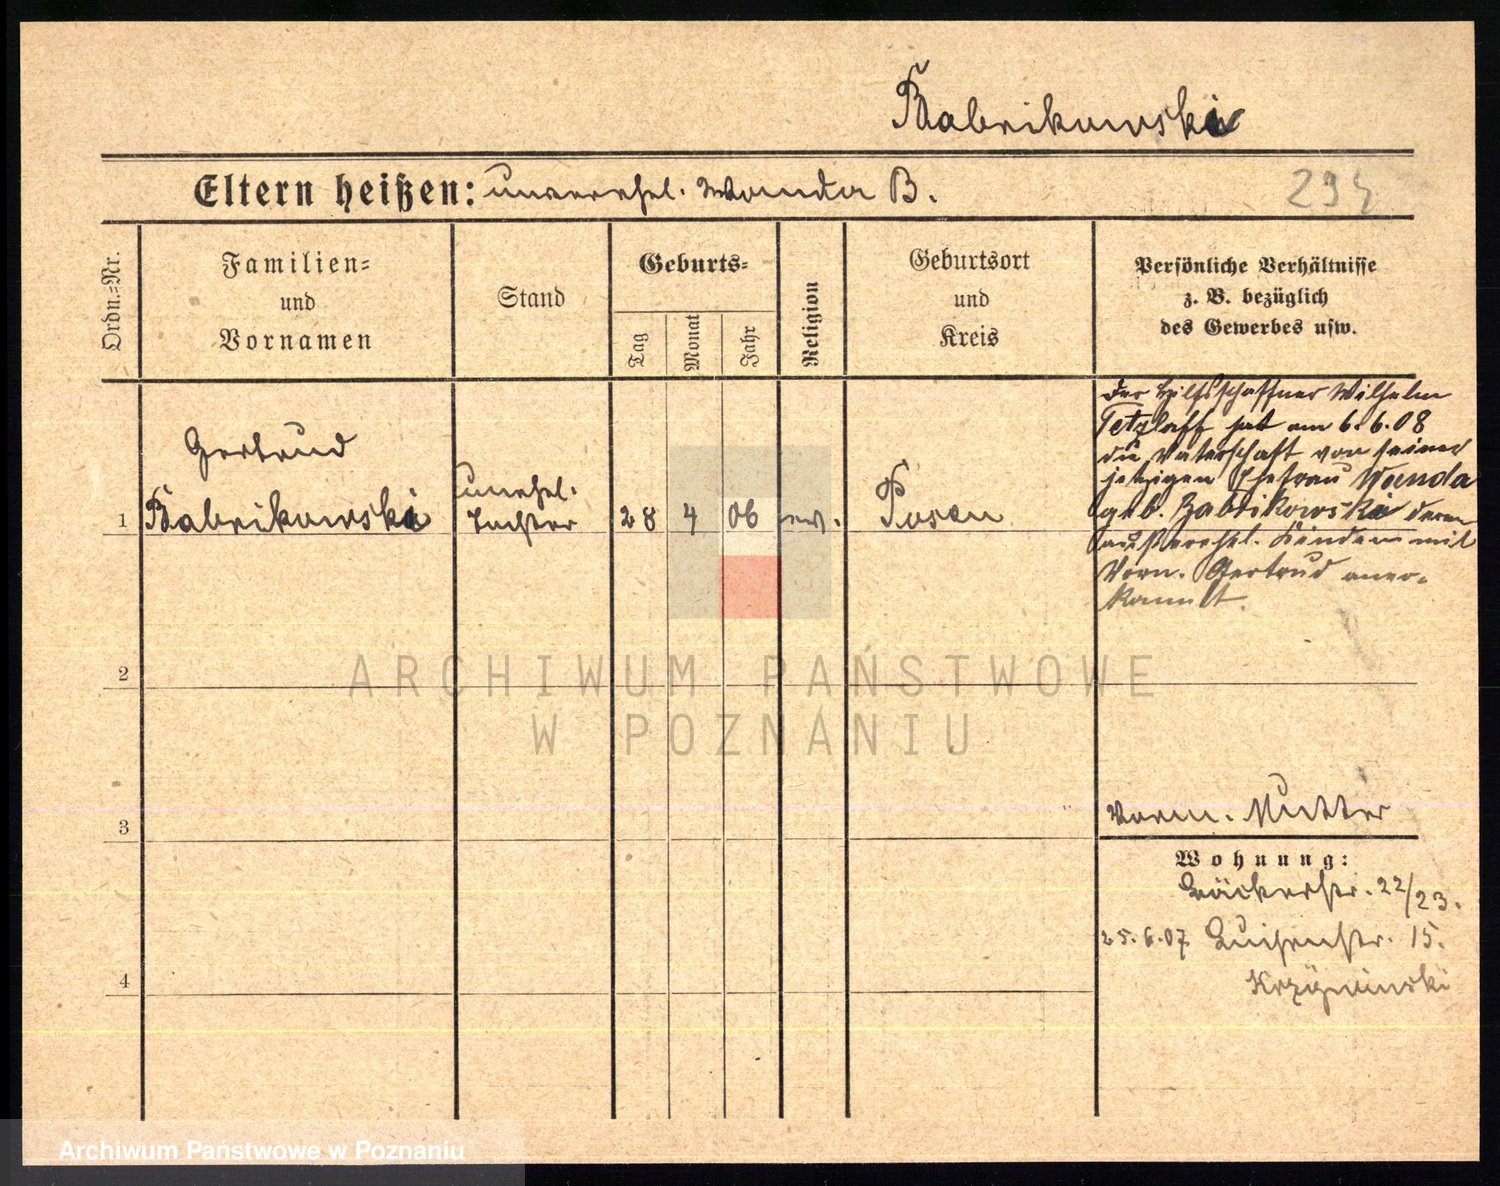 Babrikowski
Eltern heißen: unverehel. Wanda B.
Ordn.-Nr.
Familien-
und
Vornamen
Stand
Geburts-
Tag
Monat
Jahr
Religion
Geburtsort
und
Kreis
Persönliche Verhältnisse
z. B. bezüglich
des Gewerbes usw.
Gertrud
1 Babrikowski
unehel.
Tochter
28 4 06 ev.
Posen
Der Hilfsschaffner Wilhelm
Tetzlaff hat am 6.6.08
die Vaterschaft von seiner
jetzigen Ehefrau Wanda
geb. Babrikowski deren
außerehel. Kindes mit
Vorn. Gertrud aner-
kannt.
2
3
4
Vorm. Mutter
Wohnung:
Bäckerstr. 22/23.
25.6.07 Luisenstr. 15.
ARCHIWUM PAŃSTWOWE
W POZNANIU
Archiwum Państwowe w Poznaniu